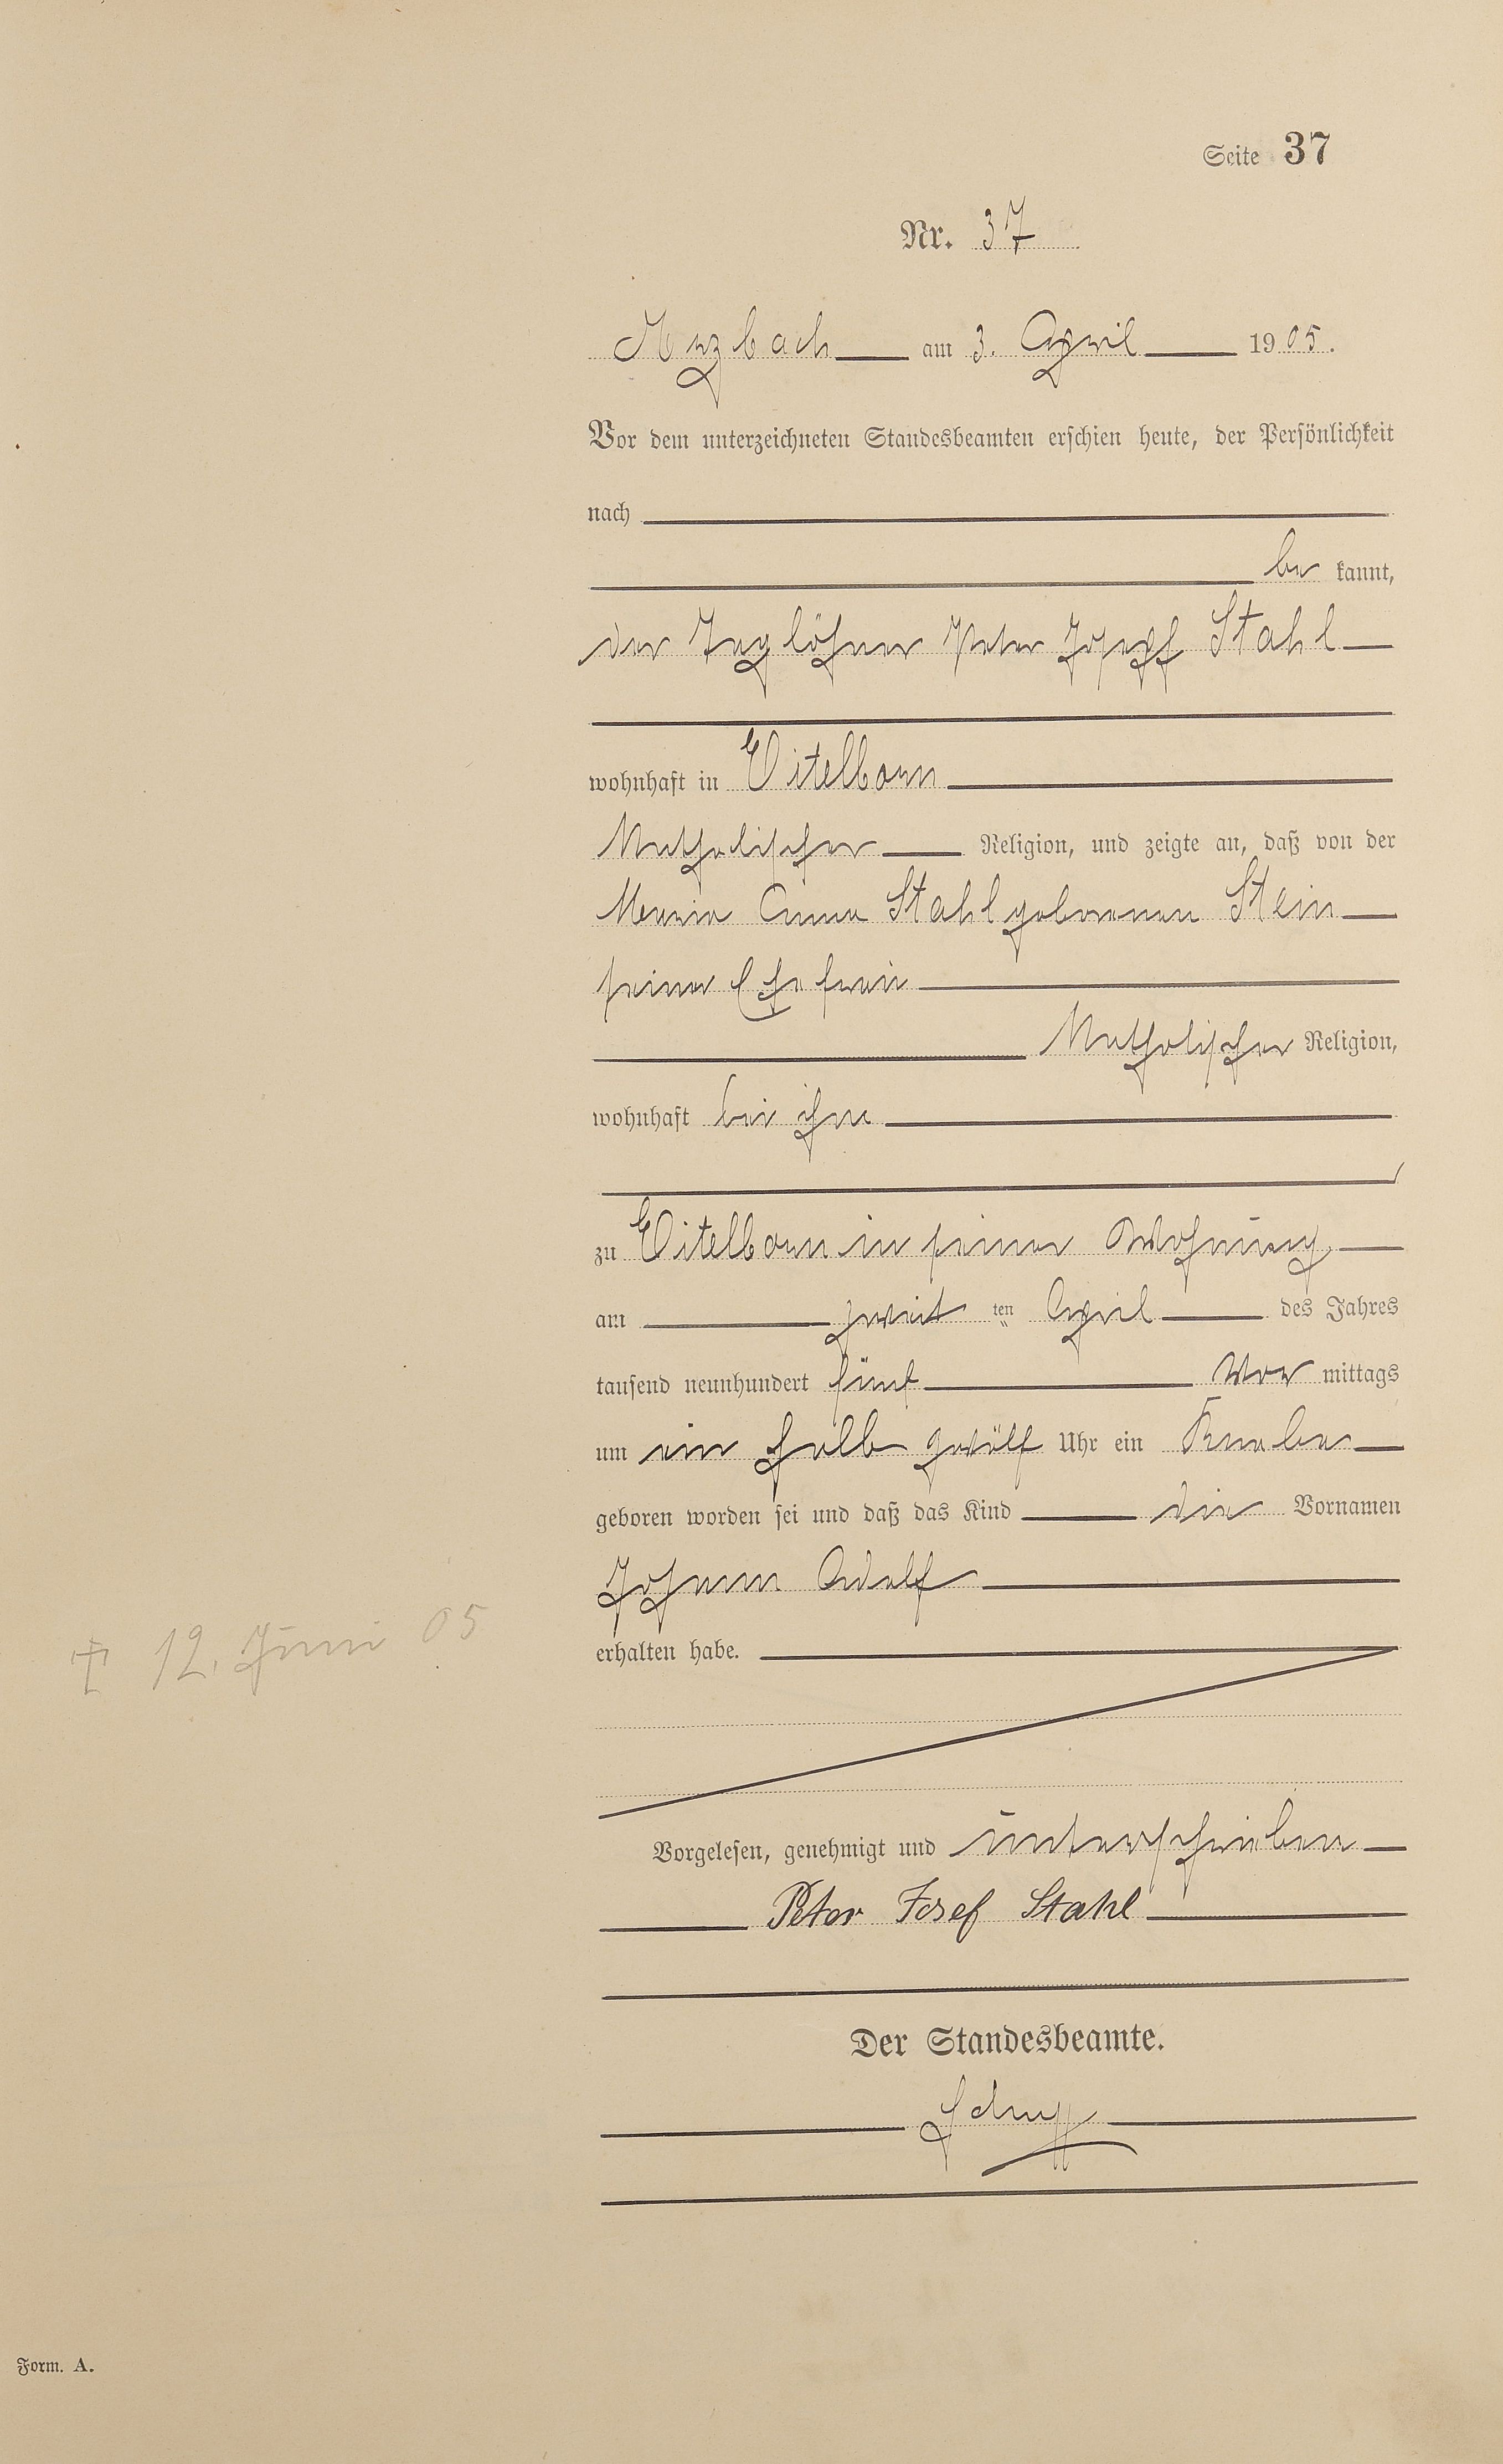 Seite 37
Nr. 37
Arzbach am 3. April 1905.
Vor dem unterzeichneten Standesbeamten erschien heute, der Persönlichkeit
nach
be kannt,
der Taglöhner Peter Joseph Stahl
wohnhaft in Eitelborn
Katholischer Religion, und zeigte an, daß von der
Maria Anna Stahl geborenen Stein
seiner Ehefrau
Katholischer Religion,
wohnhaft bei ihm
zu Eitelborn in seiner Wohnung
am zweit ten April des Jahres
tausend neunhundert fünf Vor mittags
um ein halb zwölf Uhr ein Knabe
geboren worden sei und daß das Kind die Vornamen
Johann Adolf
† 12. Juni 05
erhalten habe.
Vorgelesen, genehmigt und unterschrieben
Peter Josef Stahl
Der Standesbeamte.
Form. A.